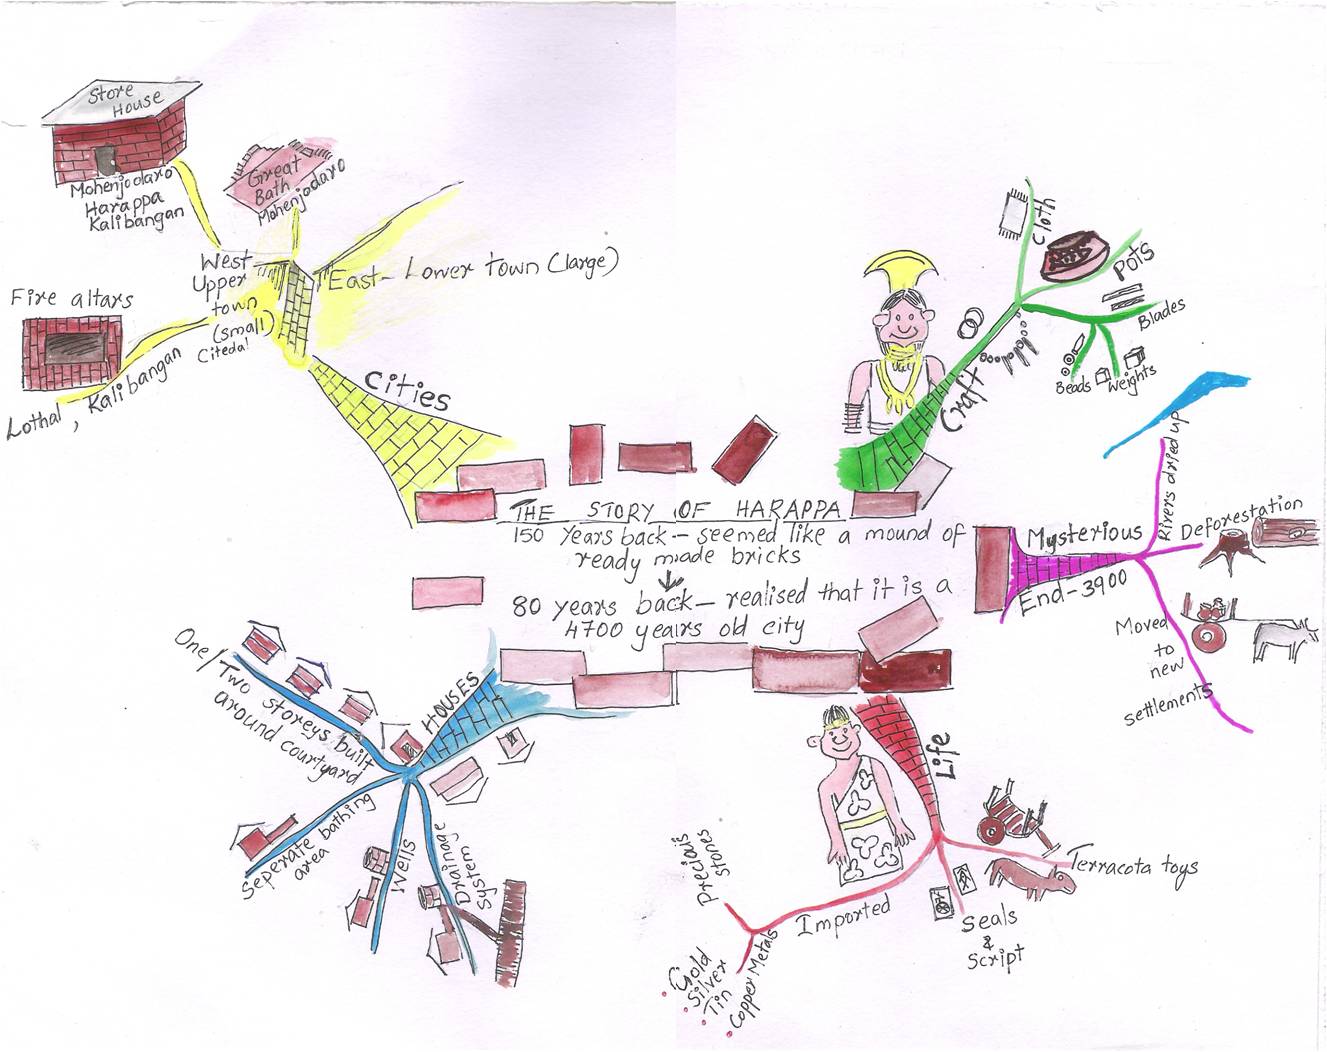 THE STORY OF HARAPPA
150 Years back – seemed like a mound of
ready made bricks
80 years back – realised that it is a
4700 years old city
Cities
West
Upper
town
(small)
Citedal
East – Lower town (large)
Store
House
Mohenjodaro
Harappa
Kalibangan
Great
Bath
Mohenjodaro
Fire altars
Lothal, Kalibangan
Craft
Cloth
Pots
Blades
Beads
Weights
Mysterious
End – 3900
Rivers dried up
Deforestation
Moved
to
new
settlements
Life
Terracota toys
Seals
&
Script
Imported
Precious
stones
Copper Metals
Gold
Silver
Tin
HOUSES
One/Two storeys built
around courtyard
Seperate bathing
area
Wells
Drainage
System